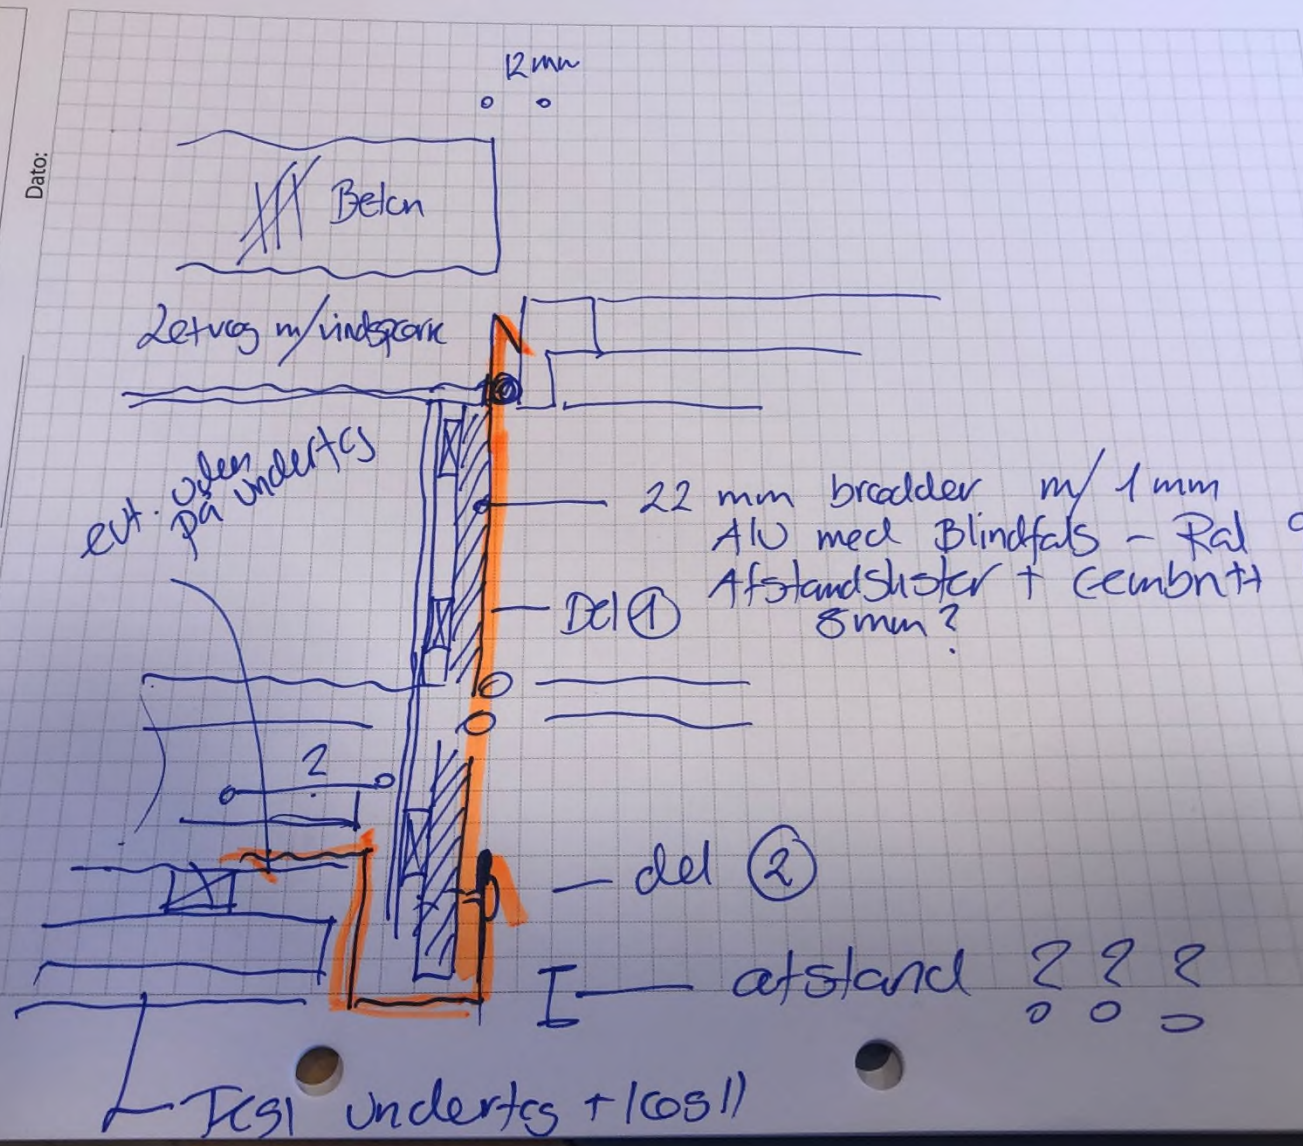 12 mm
Dato:
Beton
Letvæg m/vindspærre
evt. uden
på undertag
22 mm brædder m/ 1 mm
ALU med Blindfals - Ral
Afstandslister + Cembrit
8 mm?
Del 1
2
del 2
afstand ? ? ?
undertag +